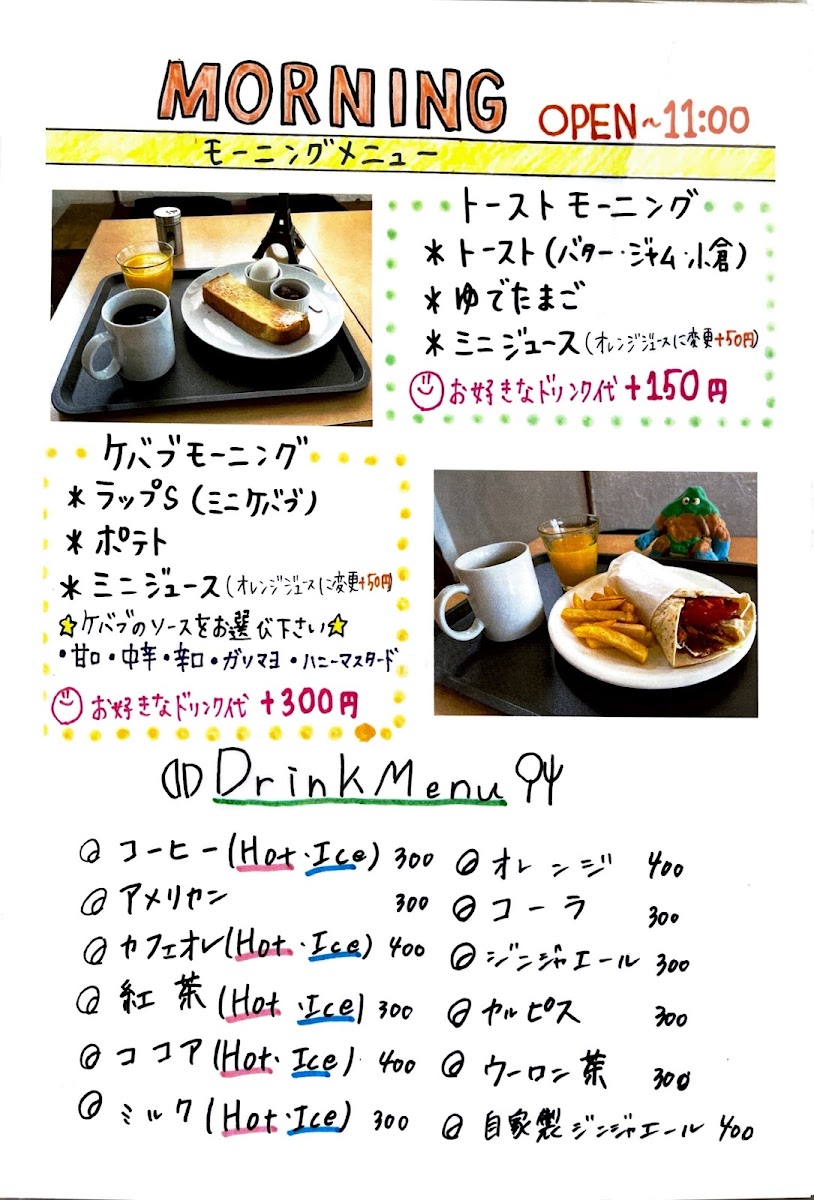 MORNING OPEN~11:00
モーニングメニュー
トーストモーニング
* トースト(バター・ジャム・小倉)
* ゆでたまご
* ミニジュース(オレンジジュースに変更+50円)
お好きなドリンク代 +150円
ケバブモーニング
* ラップS(ミニケバブ)
* ポテト
* ミニジュース(オレンジジュースに変更+50円)
☆ケバブのソースをお選び下さい☆
・甘口・中辛・辛口・ガリマヨ・ハニーマスタード
お好きなドリンク代 +300円
Drink Menu
コーヒー(Hot・Ice) 300
アメリカン 300
カフェオレ(Hot・Ice) 400
紅茶(Hot・Ice) 300
ココア(Hot・Ice) 400
ミルク(Hot・Ice) 300
オレンジ 400
コーラ 300
ジンジャエール 300
カルピス 300
ウーロン茶 300
自家製ジンジャエール 400